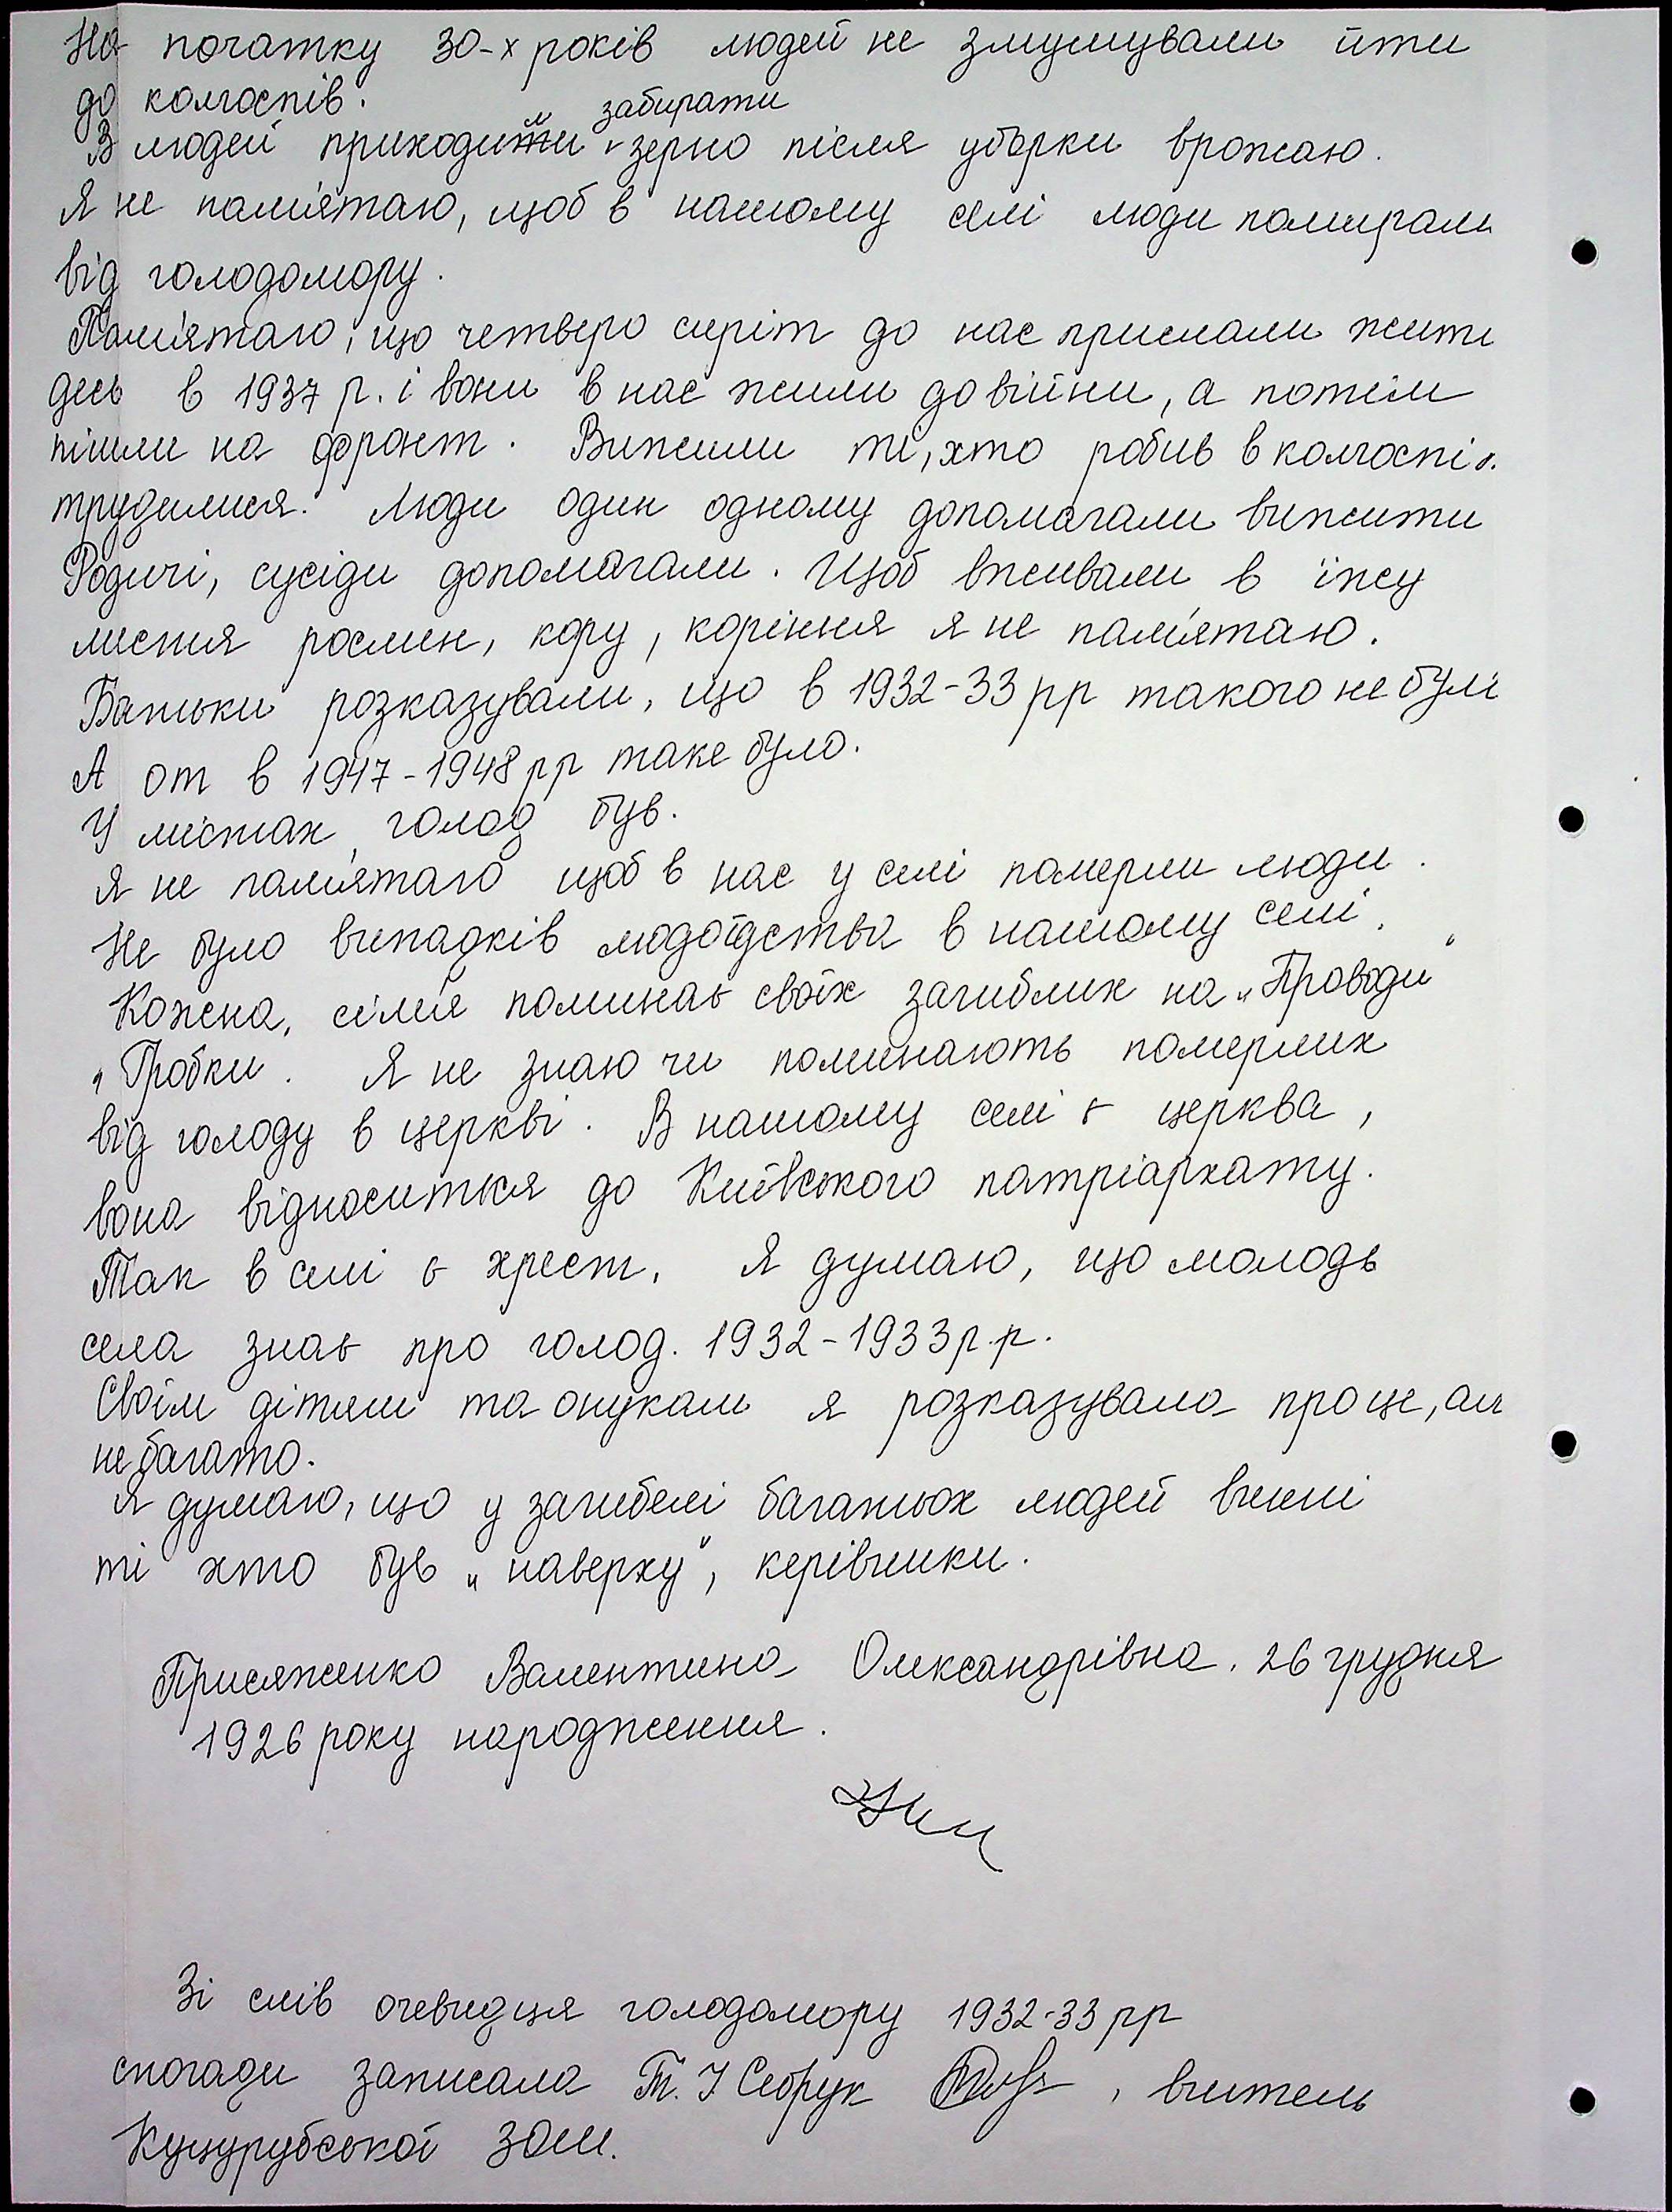 На початку 30-х років людей не змушували йти
до колгоспів.
В людей приходили забирати зерно після уборки врожаю.
Я не пам'ятаю, щоб в нашому селі люди помирали
від голодомору.
Пам'ятаю, що четверо сиріт до нас прислали жити
десь в 1937 р. і вони в нас жили до війни, а потім
пішли на фронт. Вижили ті, хто робив в колгоспі
трудилися. Люди один одному допомагали вижити
Родичі, сусіди допомагали. Щоб вживали в їжу
листя рослин, кору, коріння я не пам'ятаю.
Батьки розказували, що в 1932-33 рр такого не було
А от в 1947-1948 рр таке було.
У містах голод був.
Я не пам'ятаю щоб в нас у селі померли люди.
Не було випадків людоїдства в нашому селі.
Кожна, сім'я поминає своїх загиблих на „Проводи"
„Гробки. Я не знаю чи поминають померлих
від голоду в церкві. В нашому селі є церква,
вона відноситься до Київського патріархату.
Так в селі є хрест. Я думаю, що молодь
села знає про голод. 1932-1933 р.р.
Своїм дітям та онукам я розказувала про це, але
не багато.
Я думаю, що у загибелі багатьох людей винні
ті хто був „наверху", керівники.
Присяженко Валентина Олександрівна. 26 грудня
1926 року народження.
Зі слів очевидця голодомору 1932-33 рр
спогади записала Т. І Сербук , вчитель
Куцурубської ЗОШ.